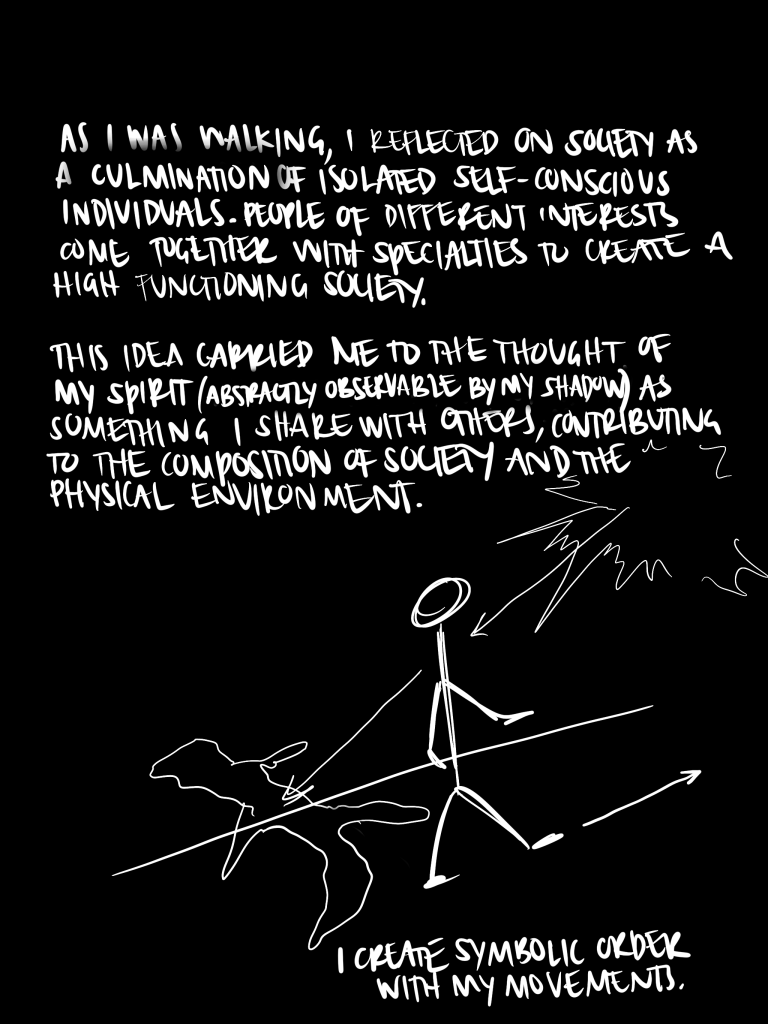 AS I WAS WALKING, I REFLECTED ON SOCIETY AS
A CULMINATION OF ISOLATED SELF-CONSCIOUS
INDIVIDUALS. PEOPLE OF DIFFERENT INTERESTS
COME TOGETHER WITH SPECIALTIES TO CREATE A
HIGH FUNCTIONING SOCIETY.
THIS IDEA CARRIED ME TO THE THOUGHT OF
MY SPIRIT (ABSTRACTLY OBSERVABLE BY MY SHADOW) AS
SOMETHING I SHARE WITH OTHERS, CONTRIBUTING
TO THE COMPOSITION OF SOCIETY AND THE
PHYSICAL ENVIRONMENT.
I CREATE SYMBOLIC ORDER
WITH MY MOVEMENTS.